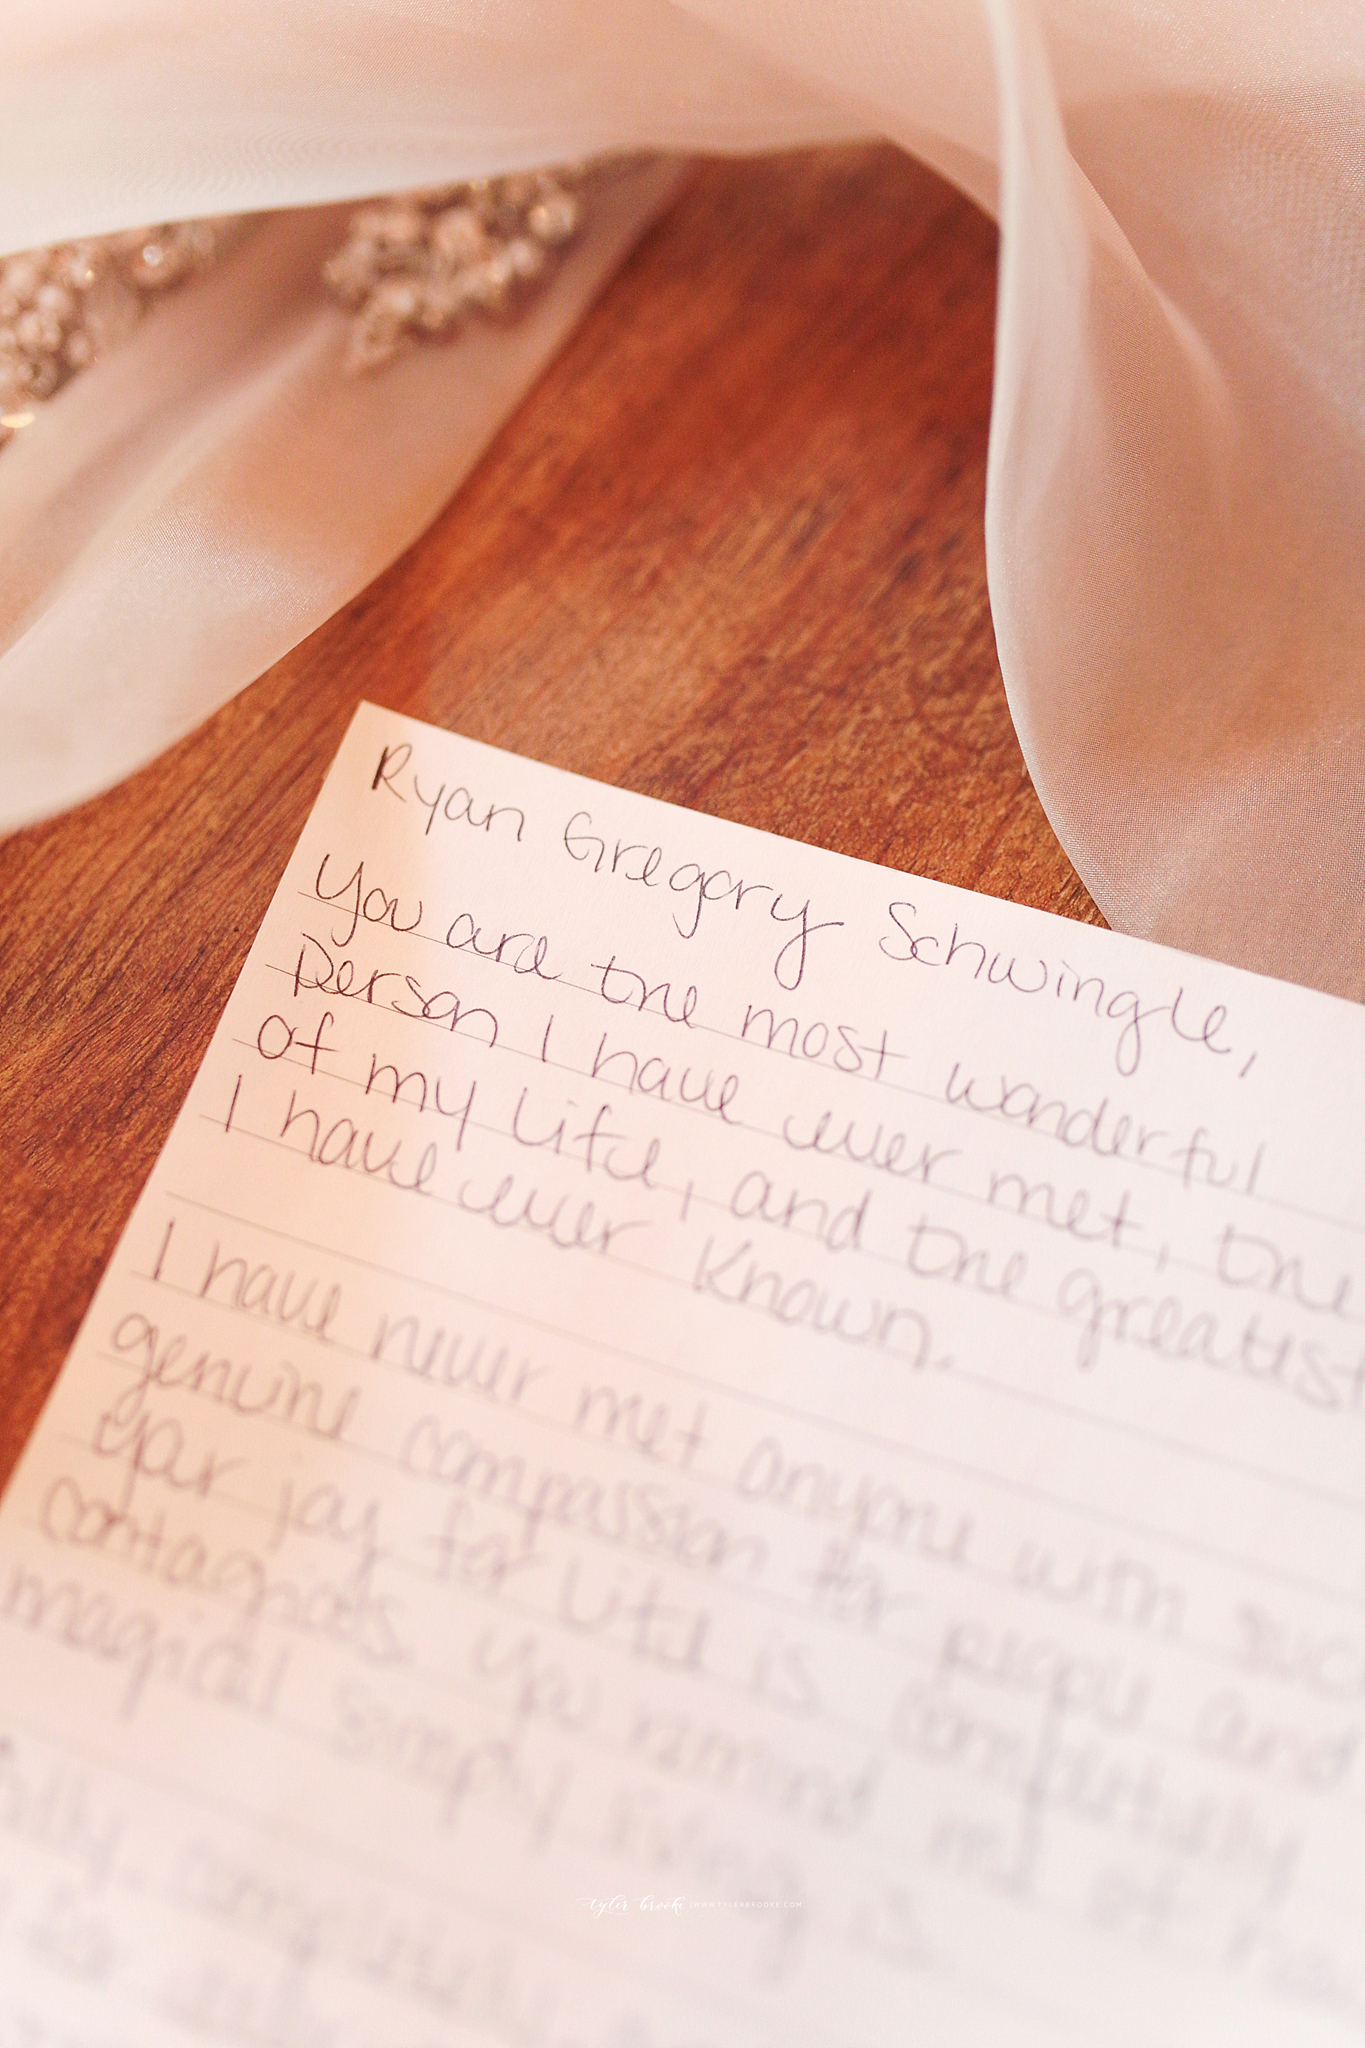 Ryan Gregory Schwingle,
You are the most wonderful
person I have ever met, the
of my life, and the greatest
I have ever known.
I have never met anyone with suc
genuine compassion for people and
your joy for life is completely
contagious. You remind me of how
magical simply living is.
tyler brooke | WWW.TYLERBROOKE.COM